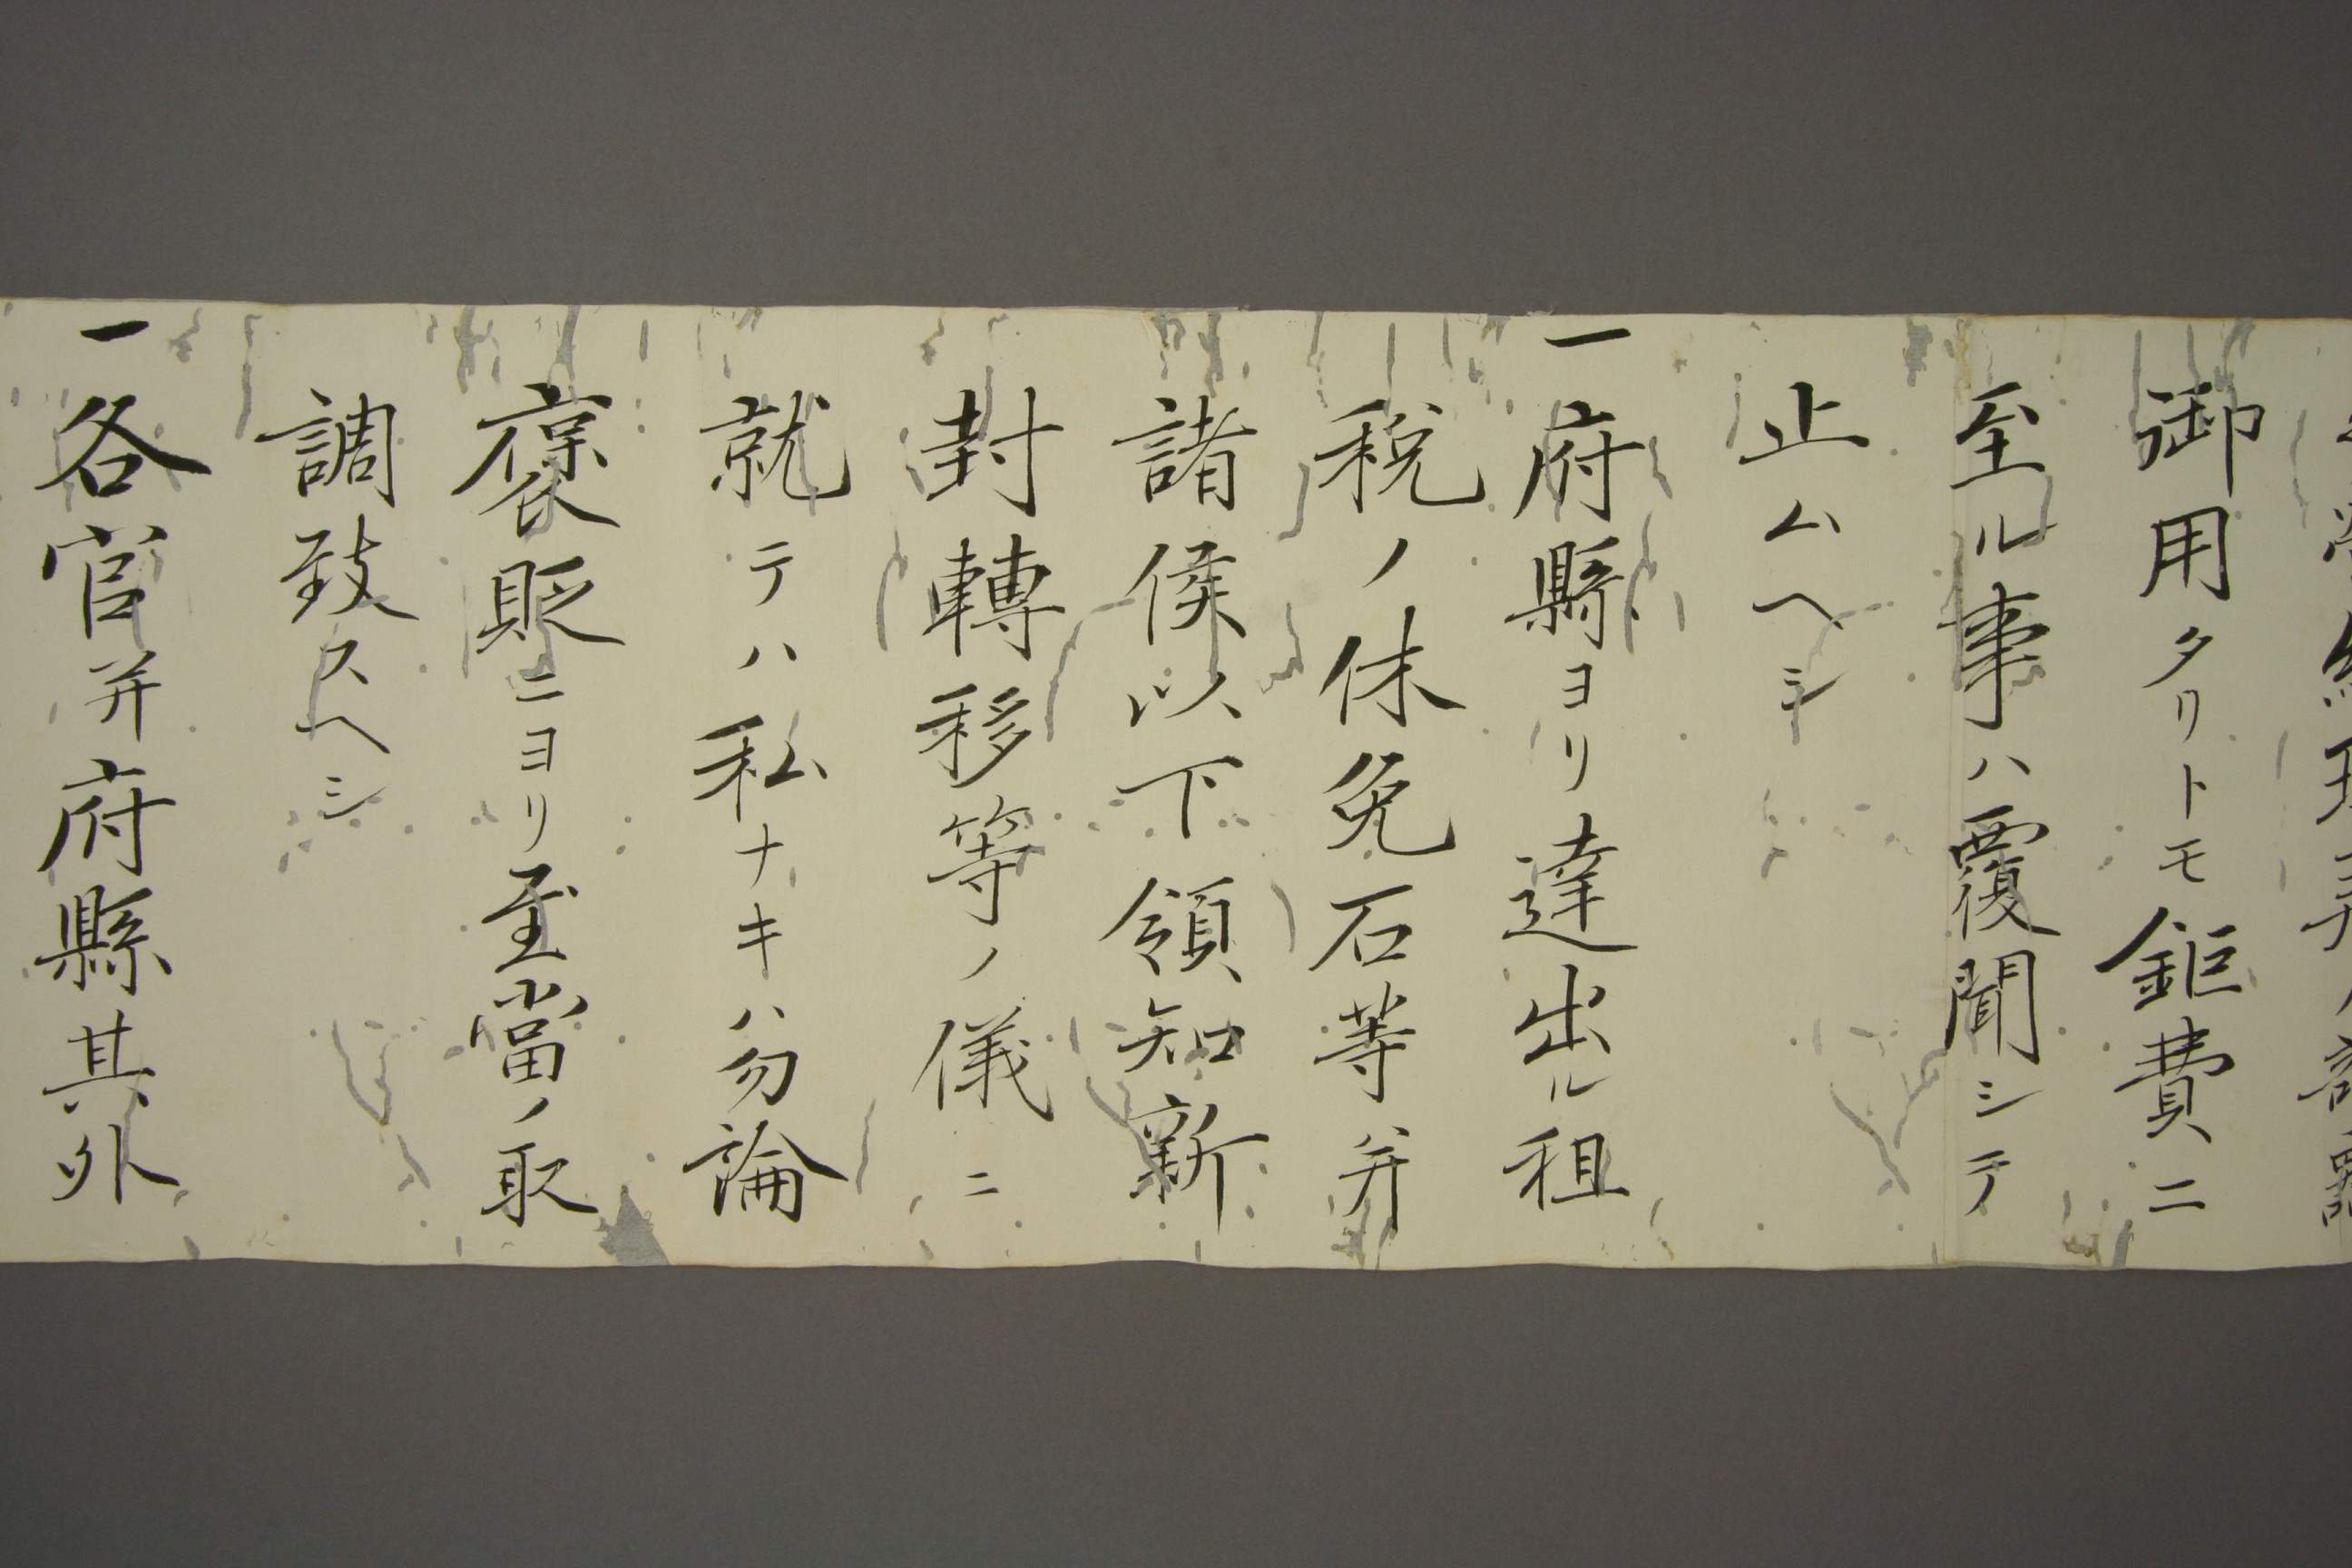 御用タリトモ鉅費ニ
至ル事ハ覆聞シテ
止ムヘシ
一府縣ヨリ達出ル租
税ノ休免石等并
諸侯以下領知新
封轉移等ノ儀ニ
就テハ私ナキハ勿論
褒貶ニヨリ至當ノ取
調致スヘシ
一各官并府縣其外